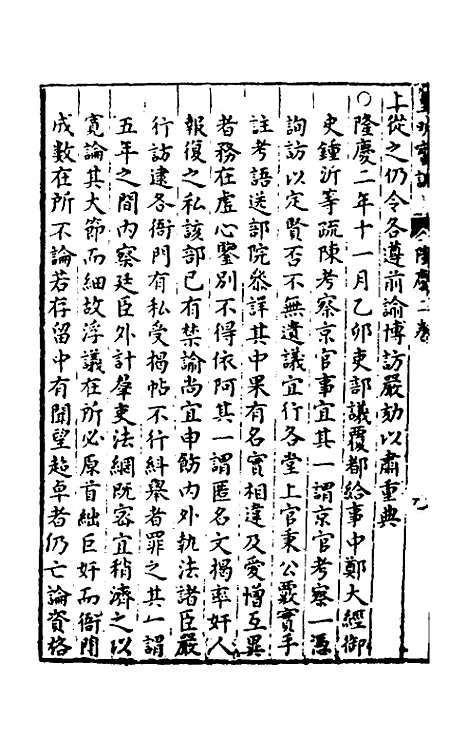 上從之仍令各遵前諭博訪嚴劾以肅重典
○隆慶二年十一月乙卯吏部議覆都給事中鄭大經御
史鍾沂等疏陳考察京官事宜其一謂京官考察一憑
詢訪以定賢否不無遺議宜行各堂上官秉公覈實手
註考語送部院叅詳其中果有名實相違及愛憎互異
者務在虛心鑒別不得依阿其一謂匿名文揭率奸人
報復之私該部已有禁諭尚宜申飭内外執法諸臣嚴
行訪逮各衙門有私受揭帖不行糾舉者罪之其一謂
五年之間内察廷臣外計羣吏法網既密宜稍濟之以
寛論其大節而細故浮議在所必原首絀巨奸而衙門
成數在所不論若存留中有聞望超卓者仍亡論資格